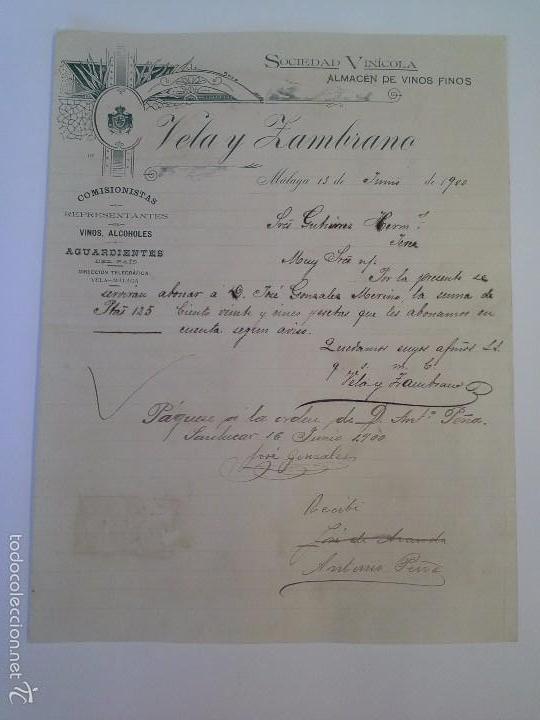 SOCIEDAD VINÍCOLA
ALMACÉN DE VINOS FINOS
DE
Vela y Zambrano
Málaga 13 de Junio de 1900
COMISIONISTAS
REPRESENTANTES
DE
VINOS, ALCOHOLES
Y
AGUARDIENTES
DEL PAÍS
DIRECCIÓN TELEGRÁFICA:
VELA-MÁLAGA
Sres Gutiérrez Herms.
Jerez
Muy Sres ns/.
Por la presente se
serviran abonar á D. José Gonzalez Merino la suma de
Ptas 125 Ciento veinte y cinco pesetas que les abonamos en
cuenta segun aviso.
Quedamos suyos afmos S.S.
q s. m. b.
Vela y Zambrano
Páguese á la orden de D. Anto. Peña.
Sanlucar 16 Junio 1900
José Gonzales
Recibí
José de Aranda
Antonio Peña
todocoleccion.net
tc